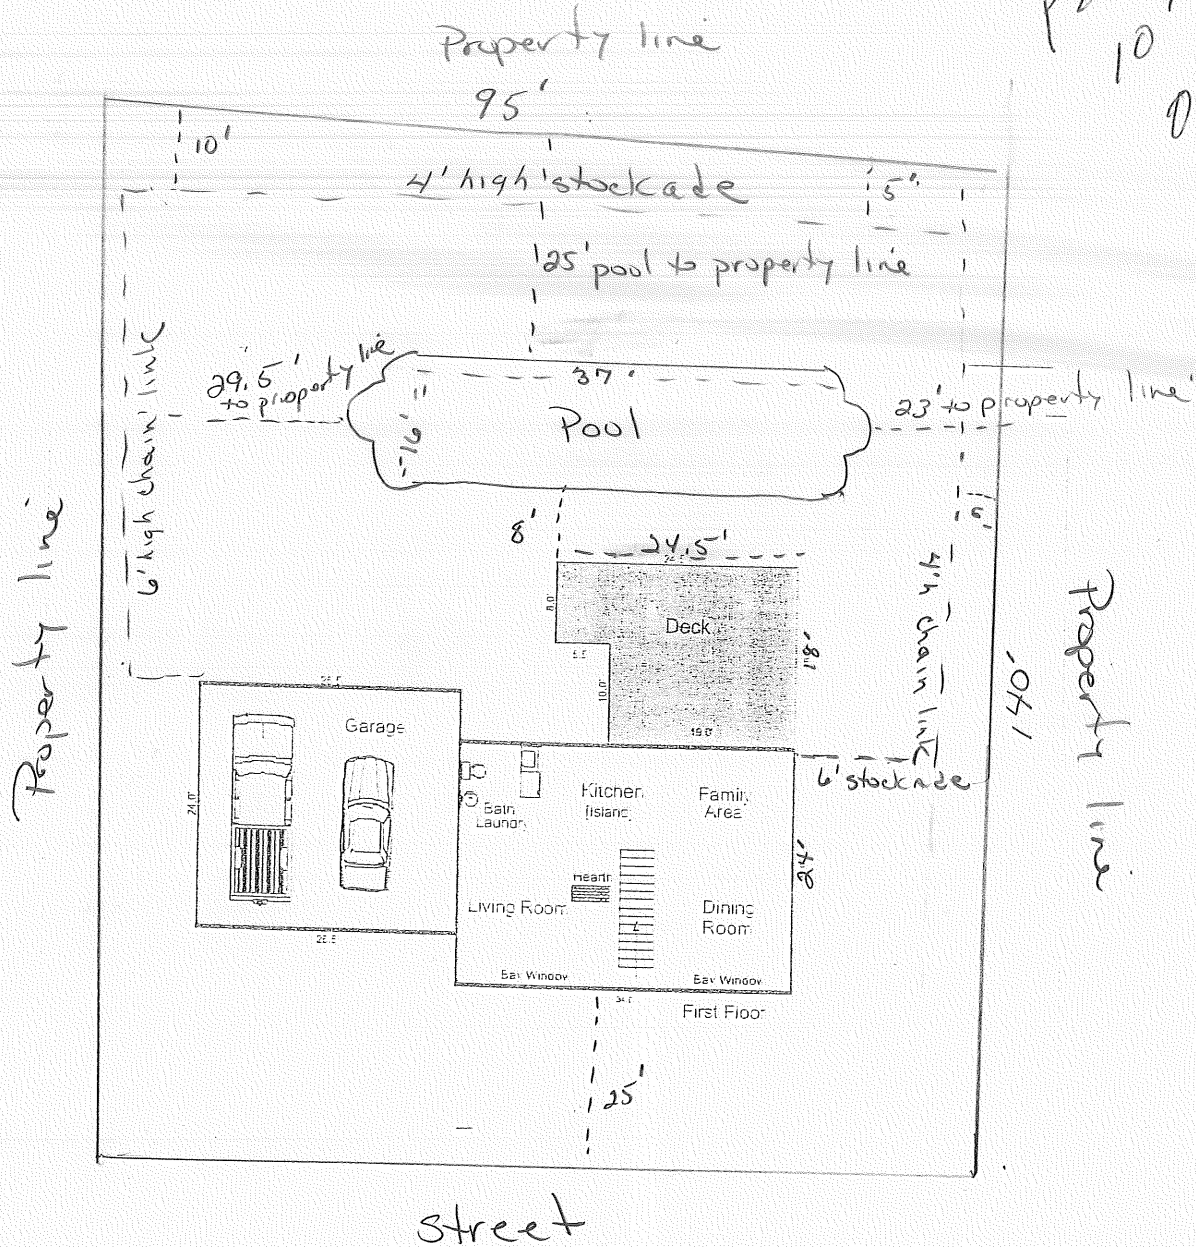 Property line
95'
10'
4' high stockade
5'
25' pool to property line
29.5'
to property line
37'
16'
Pool
23' to property line
6' high chain link
8'
24.5'
8.0'
Deck
5.5
10.0'
19.0'
4'h chain link
140'
Property line
Property line
6' stockade
Garage
24.0'
Bath
Laundry
Kitchen
Island
Family
Area
24'
Hearth
Living Room
Dining
Room
Bay Window
Bay Window
First Floor
25'
street